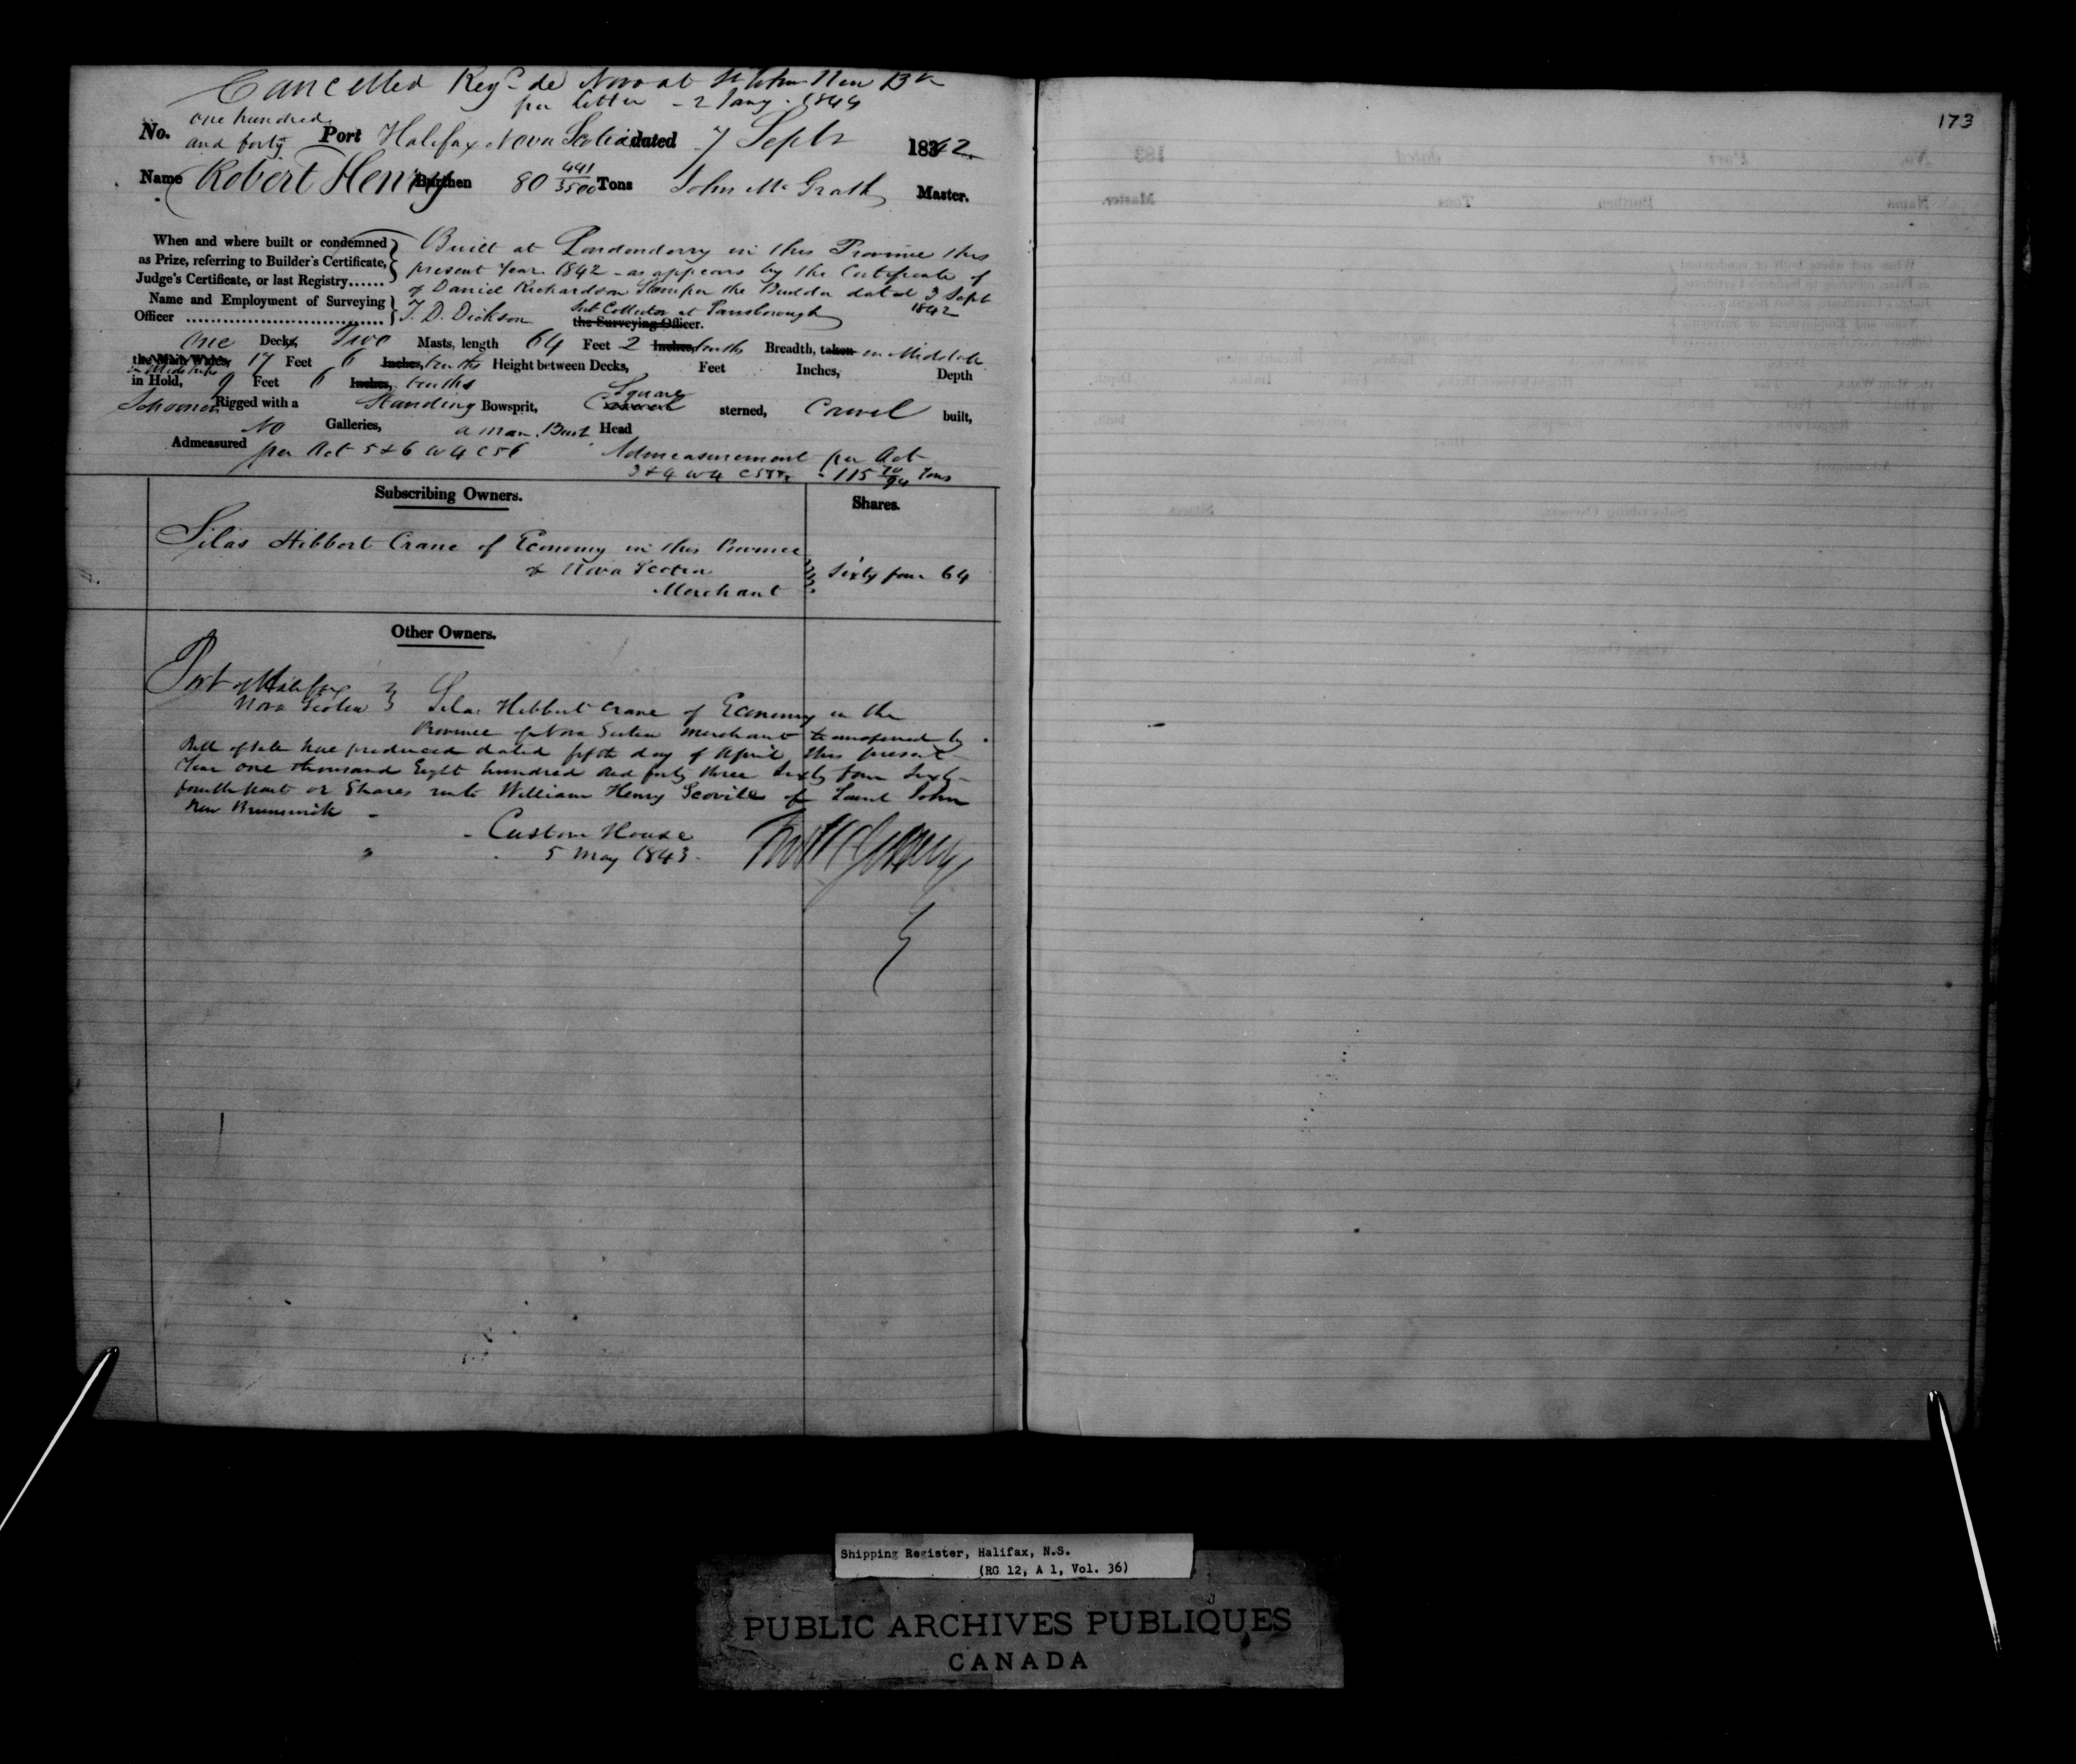 Cancelled Regd de Novo at St John New Bk
per letter - 2 Jany. 1844
No. one hundred and forty Port Halifax Nova Scotia dated 7 Septr 1842
Name Robert Henry Burthen 80 441/3500 Tons John McGrath Master.
When and where built or condemned as Prize, referring to Builder's Certificate, Judge's Certificate, or last Registry......
Built at Londonderry in this Province this
present Year 1842 - as appears by the Certificate of
of Daniel Richardson the Builder dated 3 Sept 1842
Name and Employment of Surveying Officer
T. D. Dickson Sub Collector at Parrsborough
the Surveying Officer.
One Decks, Two Masts, length 64 Feet 2 Inches, tenths Breadth, taken in Midships
the Main Wales, 17 Feet 6 Inches, tenths Height between Decks, Feet Inches, Depth
in Midships
in Hold, 9 Feet 6 Inches, tenths
Schooner Rigged with a Standing Bowsprit, Square sterned, Carvel built,
No Galleries, a man Bust Head
Admeasured per Act 5 & 6 W 4 C 56 Admeasurement per Act
3 & 4 W 4 C 55 - 115 Tons
Subscribing Owners.
Shares.
Silas Hibbert Crane of Economy in this Province
of Nova Scotia
Merchant
Sixty four 64
Other Owners.
Port of Halifax
Nova Scotia
Silas Hibbert Crane of Economy in the
Province of Nova Scotia Merchant transferred by
Bill of Sale here produced dated fifth day of April this present
Year one thousand Eight hundred and forty three Sixty four Sixty-
fourth part or Shares unto William Henry Scovill of Saint John
New Brunswick -
- Custom House
5 May 1843.
173
Shipping Register, Halifax, N.S.
(RG 12, A 1, Vol. 36)
PUBLIC ARCHIVES PUBLIQUES
CANADA